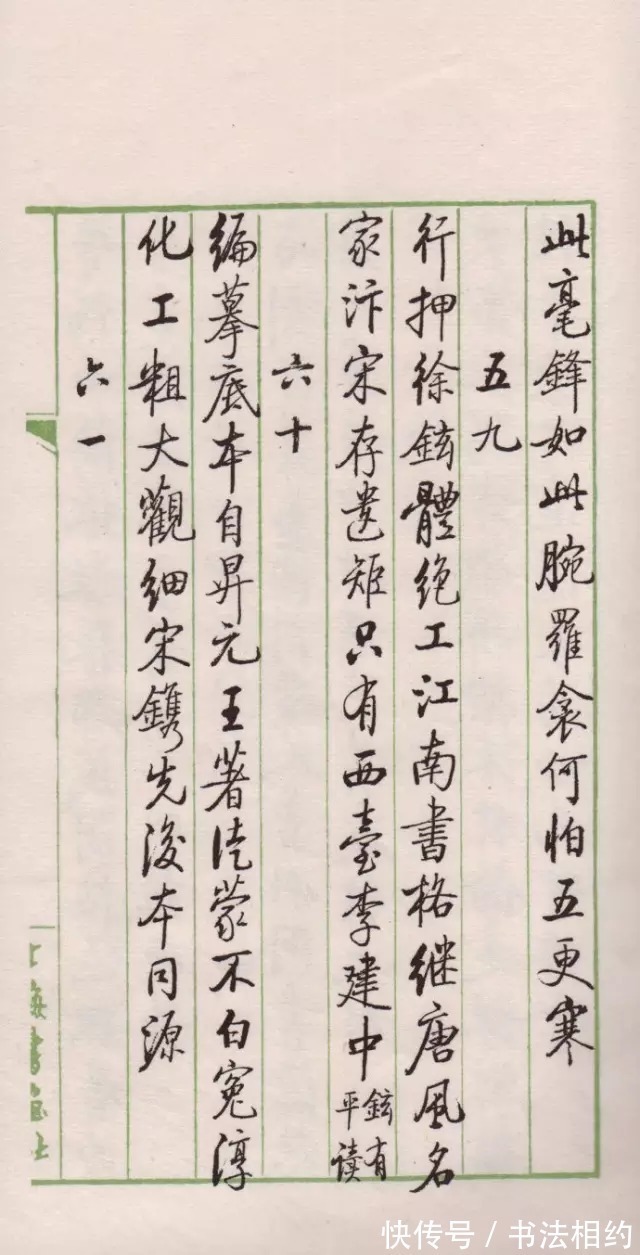 此毫鋒如此腕羅衾何怕五更寒
五九
行押徐鉉體絶工江南書格继唐風名
家汴宋存遺矩只有西臺李建中 鉉有平读
六十
編摹底本自昇元王著徒蒙不白冤淳
化工粗大觀细宋鐫先後本同源
六一
上海書画社
快传号/书法相约